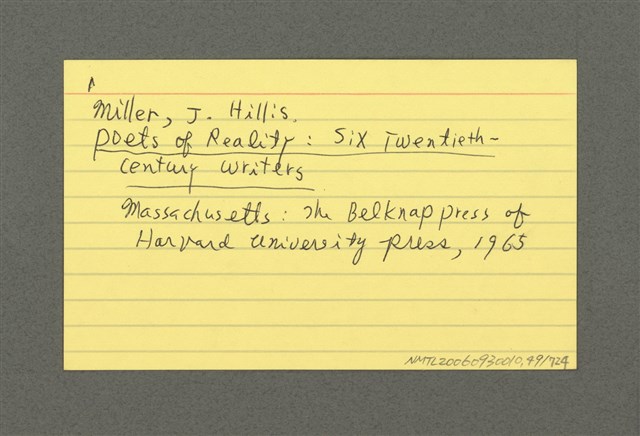 Miller, J. Hillis.
Poets of Reality : Six Twentieth-
Century Writers
Massachusetts : The Belknap press of
Harvard University press, 1965
NMTL20060930010,49/724